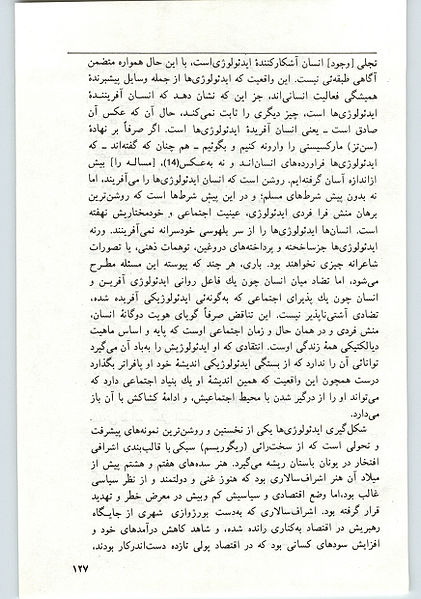 تجلی [وجود] انسان آشکارکنندهٔ ایدئولوژی‌است، با این حال همواره متضمن
آگاهی طبقه‌ئی نیست. این واقعیت که ایدئولوژی‌ها از جمله وسایل پیشبرندهٔ
همیشگی فعالیت انسانی‌اند، جز این که نشان دهد که انسان آفریننده‌ٔ
ایدئولوژی‌ها است، چیز دیگری را ثابت نمی‌کند، حال آن که عکس آن
صادق است ـ یعنی انسان آفریدهٔ ایدئولوژی‌ها است. اگر صرفاً بر نهادهٔ
(سن‌تز) مارکسیستی را وارونه کنیم و بگوئیم ـ هم چنان که گفته‌اند ـ که
ایدئولوژی‌ها فراورده‌های انسان‌اند و نه به‌عکس(14)، [مساله را] بیش
ازاندازه آسان گرفته‌ایم. روشن است که انسان ایدئولوژی‌ها را می‌آفریند، اما
نه بدون پیش شرط‌های مسلم؛ و در این پیش شرط‌ها است که روشن‌ترین
برهان منش فرا فردی ایدئولوژی، عینیت اجتماعی و خودمختاریش نهفته
است. انسان‌ها ایدئولوژی‌ها را از سر بلهوسی خودسرانه نمی‌آفرینند. ورنه
ایدئولوژی‌ها جزساخته و پرداخته‌های دروغین، توهمات ذهنی، یا تصورات
شاعرانه چیزی نخواهند بود. باری، هر چند که پیوسته این مسئله مطرح
می‌شود، اما تضاد میان انسان چون یك فاعل روانی ایدئولوژی آفرین و
انسان چون یك پذیرای اجتماعی که به‌گونه‌ئی ایدئولوژیکی آفریده شده،
تضادی آشتی‌ناپذیر نیست. این تناقض صرفاً گویای هویت دوگانهٔ انسان،
منش فردی و در همان حال و زمان اجتماعی اوست که پایه و اساس ماهیت
دیالکتیکی همهٔ زندگی اوست. انتقادی که او ایدئولوژیش را به‌باد آن می‌گیرد
توانائی آن را ندارد که از بستگی ایدئولوژیکی اندیشهٔ خود او پافراتر بگذارد
درست همچون این واقعیت که همین اندیشهٔ او یك بنیاد اجتماعی دارد که
می‌تواند او را از درگیر شدن با محیط اجتماعیش، و ادامهٔ کشاکش با آن باز
می‌دارد.
شکل‌گیری ایدئولوژی‌ها یکی از نخستین و روشن‌ترین نمونه‌های پیشرفت
و تحولی است که از سخت‌رائی (ریگوریسم) سبکی با قالب‌بندی اشرافی
افتخار در یونان باستان ریشه می‌گیرد. هنر سده‌های هفتم و هشتم پیش از
میلاد آن هنر اشراف‌سالاری بود که هنوز غنی و دولتمند و از نظر سیاسی
غالب بود، اما وضع اقتصادی و سیاسیش کم وبیش در معرض خطر و تهدید
قرار گرفته بود. اشراف‌سالاری که به‌دست بورژوازی شهری از جایگاه
رهبریش در اقتصاد به‌کناری رانده شده، و شاهد کاهش درآمدهای خود و
افزایش سودهای کسانی بود که در اقتصاد پولی تازه دست‌اندرکار بودند،
۱۲۷